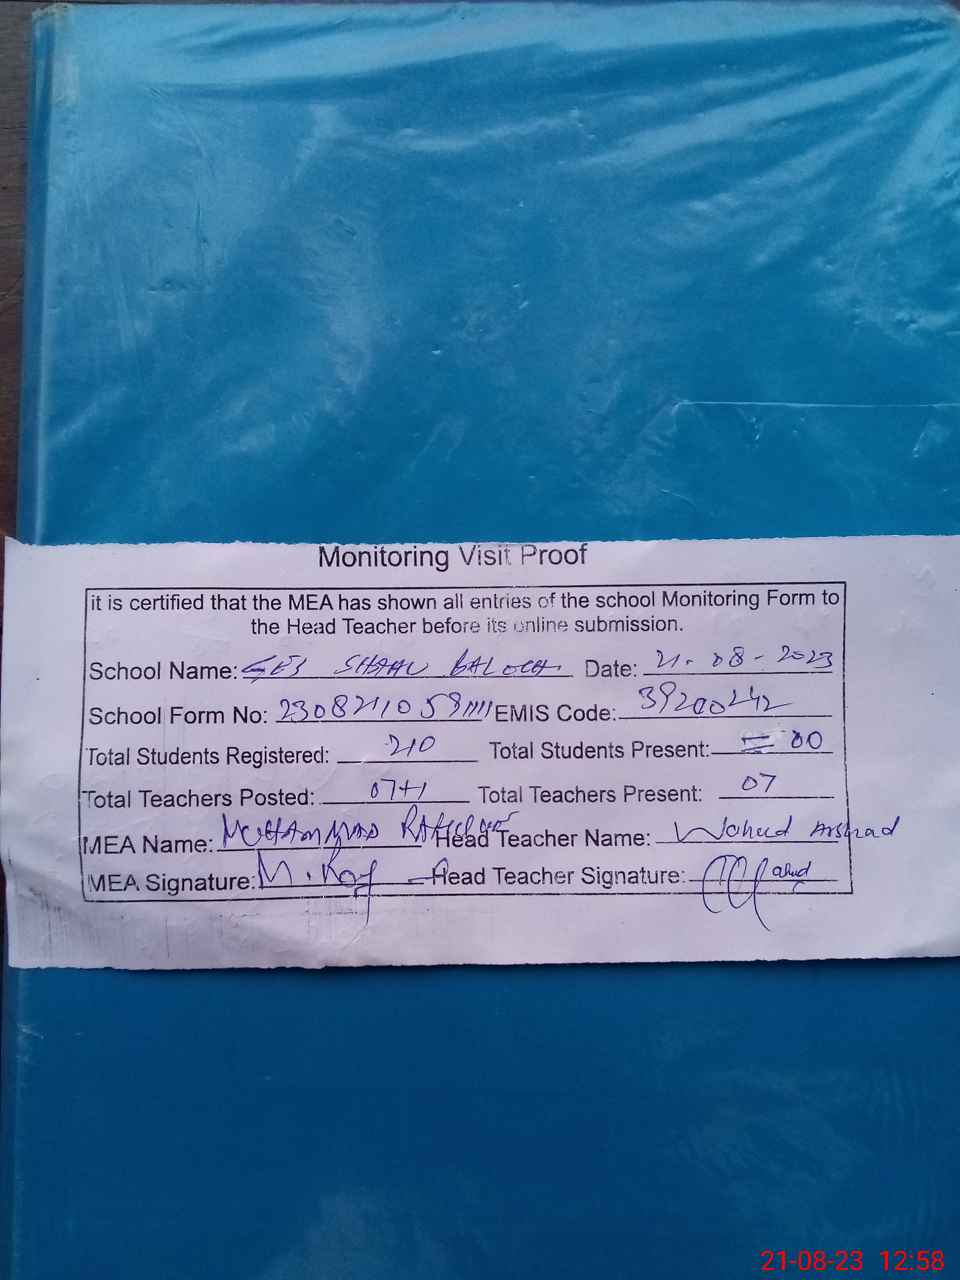 Monitoring Visit Proof
it is certified that the MEA has shown all entries of the school Monitoring Form to
the Head Teacher before its online submission.
School Name: GES SHAHU BALOCH Date: 21-08-2023
School Form No: EMIS Code: 39200242
Total Students Registered: 210 Total Students Present: 00
Total Teachers Posted: 07+1 Total Teachers Present: 07
MEA Name: MUHAMMAD Head Teacher Name: Waheed Arshad
MEA Signature: Head Teacher Signature:
21-08-23 12:58